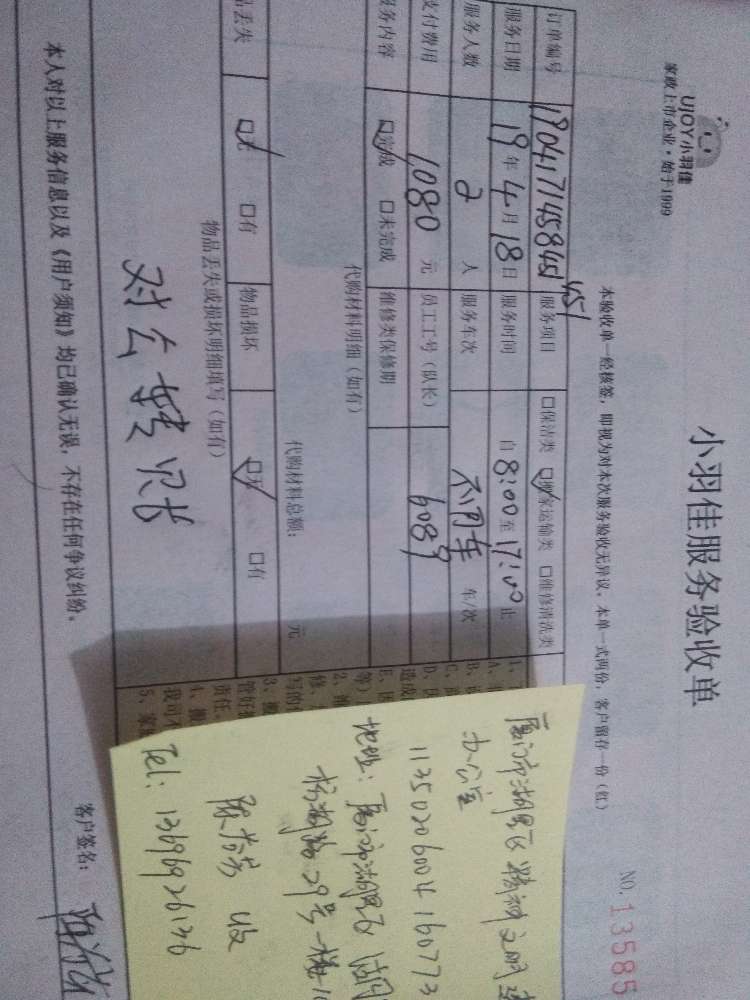 UJOY小羽佳
家政上市企业·始于1999
小羽佳服务验收单
NO. 13585
本验收单一经核签，即视为对本次服务验收无异议。本单一式两份，客户留存一份（红）
订单编号 190417145845451 451 服务项目 □保洁类 ☑搬家运输类 □维修清洗类
服务日期 19年4月18日 服务时间 自8:00至17:00止
服务人数 2人 服务车次 不用车 车/次
支付费用 1080元 员工工号（队长） 6089
服务内容 ☑完成 □未完成 维修类保修期
代购材料明细（如有）
代购材料总额： 元
品丢失 ☑无 □有 物品损坏 ☑无 □有
物品丢失或损坏明细填写（如有）
对公转账
本人对以上服务信息以及《用户须知》均已确认无误，不存在任何争议纠纷。
客户签名：
厦门市湖里区精神文明建
办公室
11350206004160773
地址：厦门市湖里区
号
收
Tel: 13696926136